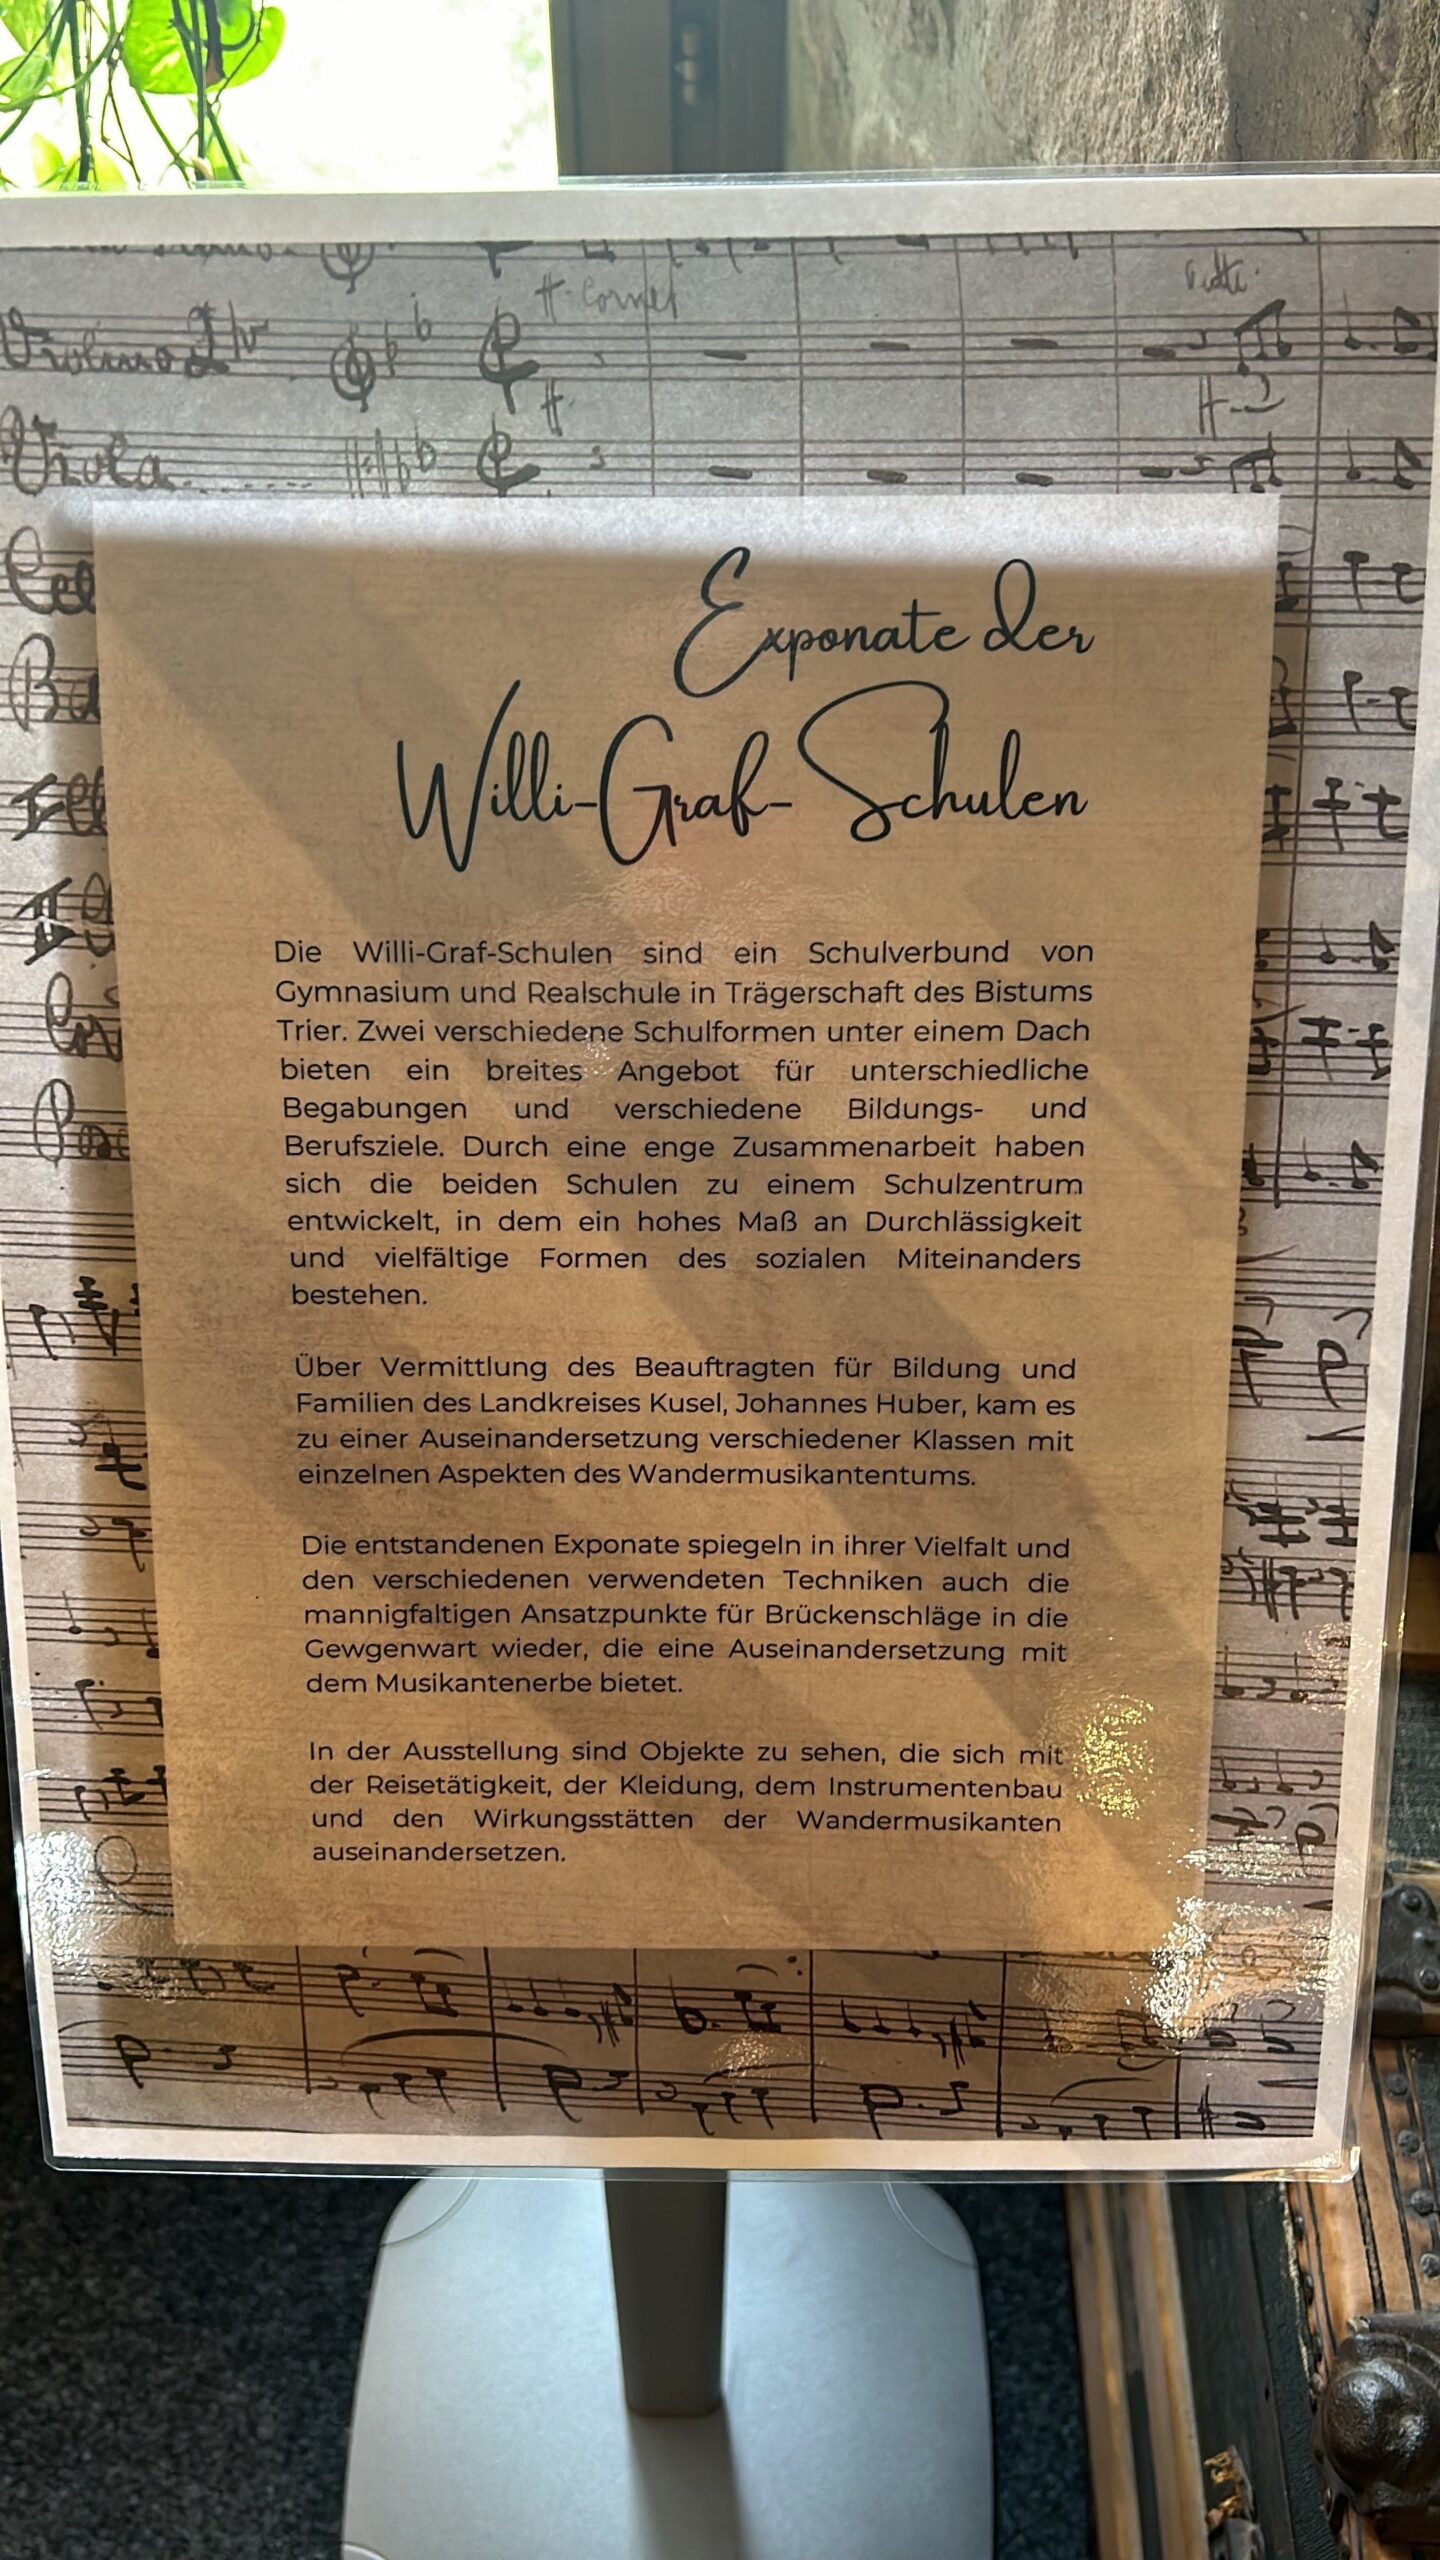 H. Cornet
Violino I
H.
Viola
Exponate der
Willi-Graf-Schulen
Die Willi-Graf-Schulen sind ein Schulverbund von
Gymnasium und Realschule in Trägerschaft des Bistums
Trier. Zwei verschiedene Schulformen unter einem Dach
bieten ein breites Angebot für unterschiedliche
Begabungen und verschiedene Bildungs- und
Berufsziele. Durch eine enge Zusammenarbeit haben
sich die beiden Schulen zu einem Schulzentrum
entwickelt, in dem ein hohes Maß an Durchlässigkeit
und vielfältige Formen des sozialen Miteinanders
bestehen.
Über Vermittlung des Beauftragten für Bildung und
Familien des Landkreises Kusel, Johannes Huber, kam es
zu einer Auseinandersetzung verschiedener Klassen mit
einzelnen Aspekten des Wandermusikantentums.
Die entstandenen Exponate spiegeln in ihrer Vielfalt und
den verschiedenen verwendeten Techniken auch die
mannigfaltigen Ansatzpunkte für Brückenschläge in die
Gewgenwart wieder, die eine Auseinandersetzung mit
dem Musikantenerbe bietet.
In der Ausstellung sind Objekte zu sehen, die sich mit
der Reisetätigkeit, der Kleidung, dem Instrumentenbau
und den Wirkungsstätten der Wandermusikanten
auseinandersetzen.